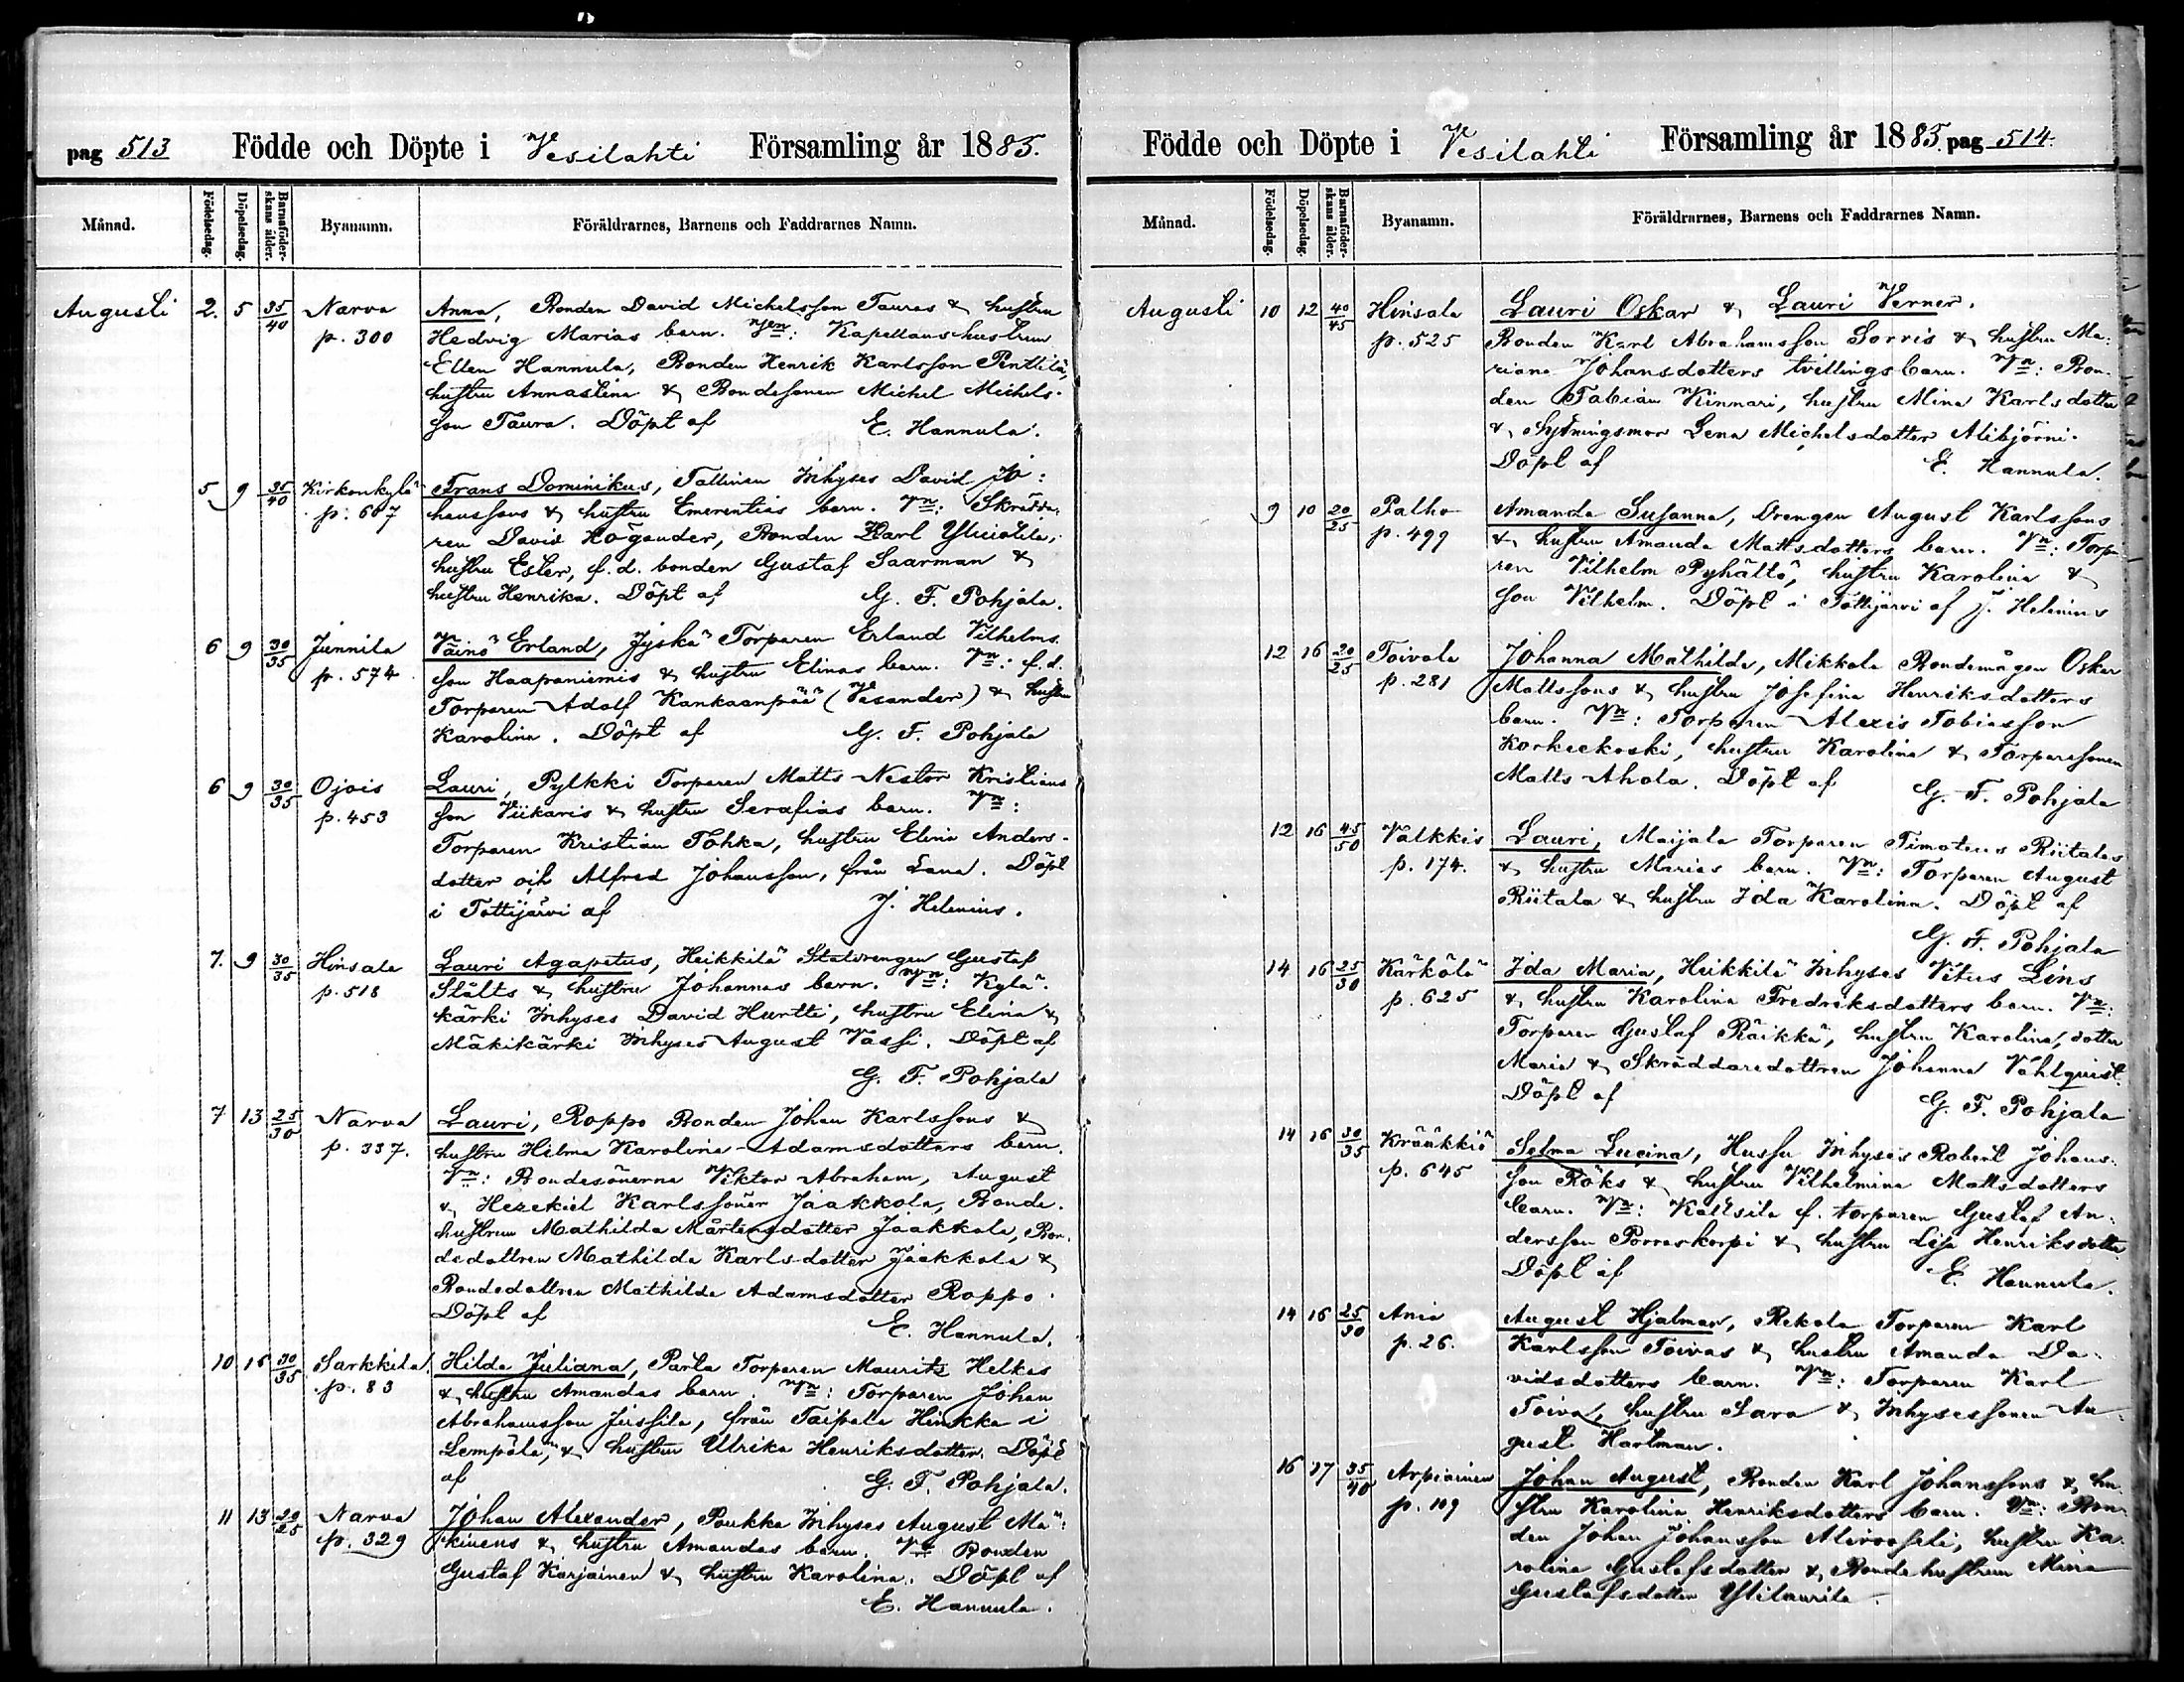 pag 513 Födde och Döpte i Vesilahti Församling år 1885.
Månad. Födelsedag. Döpelsedag. Barnaföder-skans ålder. Byanamn. Föräldrarnes, Barnens och Faddrarnes Namn.
Augusti 2. 5 35/40 Narva Anna, Bonden David Michelsson Tauras & hustru
p. 300 Hedvig Marias barn. Vn: Kapellanshustrun
Ellen Hannula, Bonden Henrik Karlsson Penttilä,
hustru Annastina & Bondesonen Michel Michels-
son Taura. Döpt af E. Hannula.
5 9 35/40 Kirkonkylä Frans Dominikus, Tallinen Inhyses David Jo:
p. 607 hanssons & hustru Emerentias barn. Vn: Skrädda-
ren David Högander, Bonden Karl
hustru Ester, f.d. bonden Gustaf Saarman &
hustru Henrika. Döpt af G. F. Pohjala.
6 9 30/35 Junnila Väinö Erland, Jyskä Torparen Erland Vilhelms-
p. 574 son Haapaniemis & hustru Elinas barn. Vn: f.d.
Torparen Adolf Kankaanpää (Vesander) & hustru
Karolina. Döpt af G. F. Pohjala
6 9 30/35 Ojois Lauri, Pylkki Torparen Matts Nestor Kristians
p. 453 son Viikaris & hustru Serafias barn. Vn:
Torparen Kristian Tohka, hustru Elina Anders-
dotter och Alfred Johansson, från Lana. Döpt
i Tottijärvi af J. Helenius.
7. 9 30/35 Hinsala Lauri Agapetus, Heikkilä Statdrengen Gustaf
p. 518 Stålts & hustru Johannas barn. Vn: Kylä-
kärki Inhyses David Hurtti, hustru Elina &
Mäkikärki Inhyses August Vassi. Döpt af
G. F. Pohjala
7 13 25/30 Narva Lauri, Roppo Bonden Johan Karlssons &
p. 337. hustru Hilma Karolina Adamsdotters barn.
Vn: Bondesönerna Viktor Abraham, August
& Hezekiel Karlssöner Jaakkola, Bonde-
hustrun Mathilda Mårtensdotter Jaakkola, Bon-
dedottren Mathilda Karlsdotter Jaakkola &
Bondedottren Mathilda Adamsdotter Roppo.
Döpt af E. Hannula.
10 16 30/35 Sarkkila Hilda Juliana, Parta Torparen Mauritz Helkas
p. 83 & hustru Amandas barn. Vn: Torparen Johan
Abrahamsson Jussila, från Taipale Hinkka i
Lempäla, & hustru Ulrika Henriksdotter. Döpt
af G. F. Pohjala.
11 13 20/25 Narva Johan Alexander, Poukka Inhyses August Mä:
p. 329 kinens & hustru Amandas barn. Vn Bonden
Gustaf Karjainen & hustru Karolina. Döpt af
E. Hannula.
Födde och Döpte i Vesilahti Församling år 1885. pag 514.
Månad. Födelsedag. Döpelsedag. Barnaföder-skans ålder. Byanamn. Föräldrarnes, Barnens och Faddrarnes Namn.
Augusti 10 12 40/45 Hinsala Lauri Oskar & Lauri Verner.
p. 525 Bonden Karl Abrahamsson Sorris & hustru Ma-
riana Johansdotters tvillingsbarn. Vn: Bon-
den Fabian Kinnari, hustru Mina Karlsdotter
& Sytningsmor Lena Michelsdotter Alibjörni.
Döpt af E. Hannula.
9 10 20/25 Palho Amanda Susanna, Drengen August Karlssons
p. 499 & hustru Amanda Mattsdotters barn. Vn: Torpa-
ren Vilhelm Pyhältö, hustru Karolina &
son Vilhelm. Döpt i Tottijärvi af J. Helenius
12 16 20/25 Toivola Johanna Mathilda, Mikkola Bondemågen Oskar
p. 281 Mattssons & hustru Josefina Henriksdotters
barn. Vn: Torparen Alexis Tobiasson
Korkeekoski, hustru Karolina & Torparesonen
Matts Ahola. Döpt af G. F. Pohjala
12 16 45/50 Valkkis Lauri, Maijala Torparen Timoteus Riitalas
p. 174. & hustru Marias barn. Vn: Torparen August
Riitala & hustru Ida Karolina. Döpt af
G. F. Pohjala
14 16 25/30 Kärkölä Ida Maria, Heikkilä Inhyses Vitus Lins
p. 625 & hustru Karolina Fredriksdotters barn. Vn:
Torparen Gustaf Räikkä, hustru Karolina, dotter
Maria & Skräddaredottren Johanna Vahlquist.
Döpt af G. F. Pohjala
14 16 30/35 Krääkkiö Selma Lucina, Hussu Inhyses Robert Johans-
p. 645 son Röks & hustru Vilhelmina Mattsdotters
barn. Vn: Kaltsila f. torparen Gustaf An-
dersson Porraskorpi & hustru Lisa Henriksdotter.
Döpt af E. Hannula.
14 16 25/30 Ania August Hjalmar, Rekola Torparen Karl
p. 26. Karlsson Toivas & hustru Amanda Da-
vidsdotters barn. Vn: Torparen Karl
Toiva, hustru Sara & Inhysessonen Au-
gust Hartman.
16 17 35/40 Arpiainen Johan August, Bonden Karl Johanssons & hu-
p. 109 stru Karolina Henriksdotters barn. Vn: Bon-
den Johan Johansson hustru Ka-
rolina Gustafsdotter & Bondehustrun Mina
Gustafsdotter Ylilaurila.